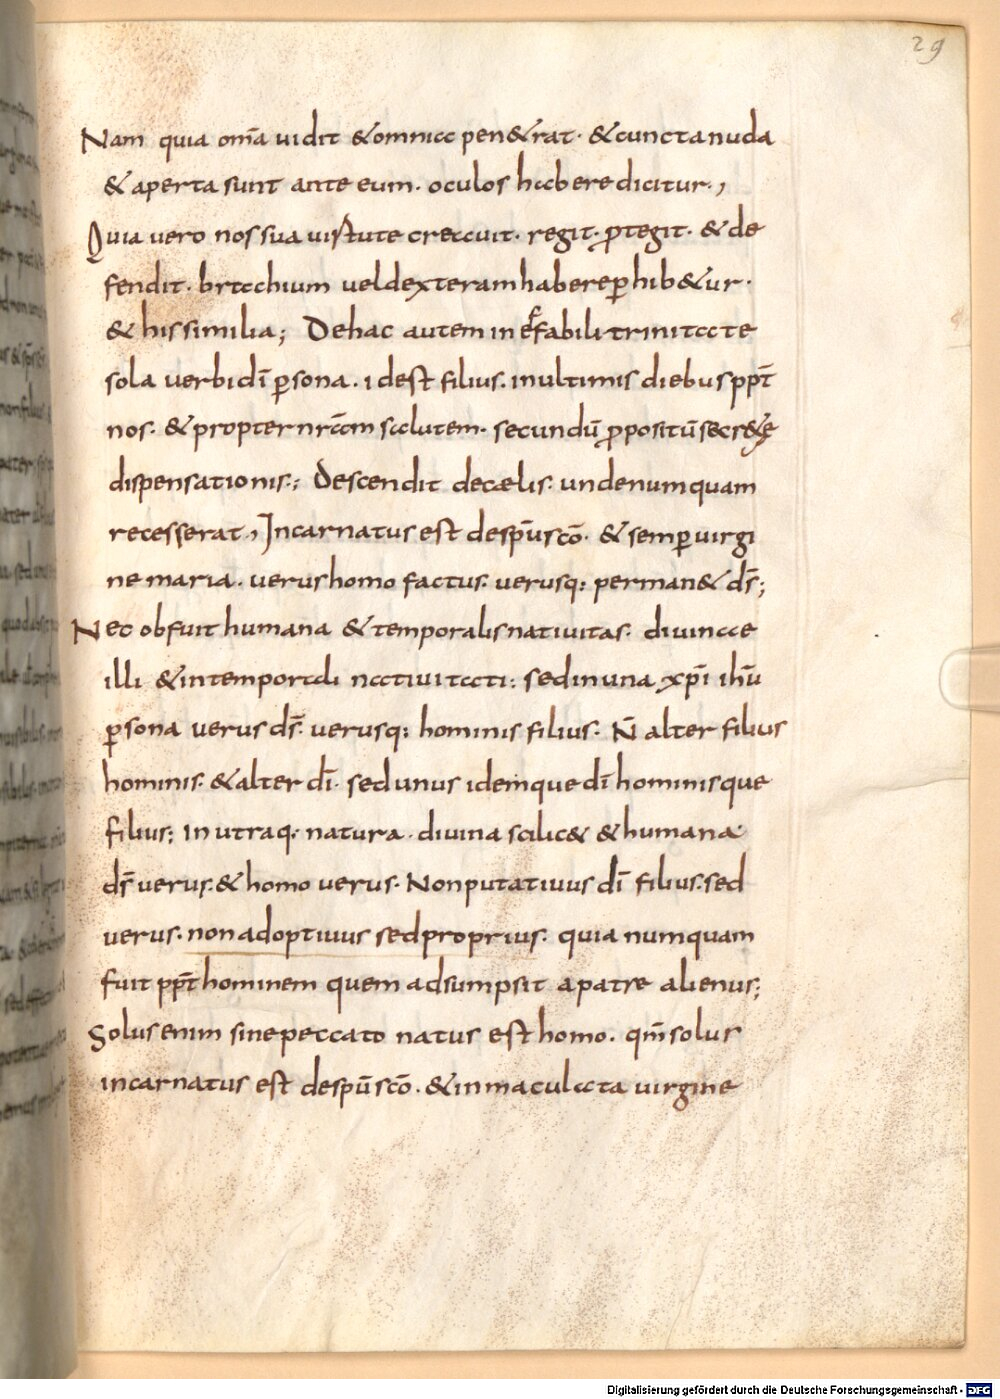 29
Nam quia om̄a uidit &omnia pen&rat· &cuncta nuda
& aperta sunt ante eum· oculos habere dicitur·,
Quia uero nos sua uirtute creauit· regit· ꝓtegit· & de
fendit· brachium uel dexteram habere ꝑhib&ur·
& his similia; De hac autem in effabili trinitate
sola uerbi dī ꝑsona· id est filius· in ultimis diebus ppt̄
nos· & propter nr̄am salutem· secundū ꝓpositū secr&e
dispensationis·; Descendit de cælis· unde numquam
recesserat·, Incarnatus est de sp̄u sc̄o· & semꝑ uirgi
ne maria· uerus homo factus· uerusq: perman& ds̄;
Nec obfuit humana & temporalis natiuitas· diuinae
illi & intemporali natiuitati: sed in una xp̄i ih̄u
ꝑsona uerus ds̄· uerusq: hominis filius· N̄ alter filius
hominis· & alter dī· sed unus idemque dī hominisque
filius; in utraq· natura· diuina scilic& & humana·
ds̄ uerus· & homo uerus· Non putatiuus dī filius· sed
uerus· non adoptiuus sed proprius· quia numquam
fuit ppt̄ hominem quem adsumpsit a patre alienus;
Solus enim sine peccato natus est homo· qm̄ solus
incarnatus est de sp̄u sc̄o· & inmaculata uirgine
Digitalisierung gefördert durch die Deutsche Forschungsgemeinschaft - DFG